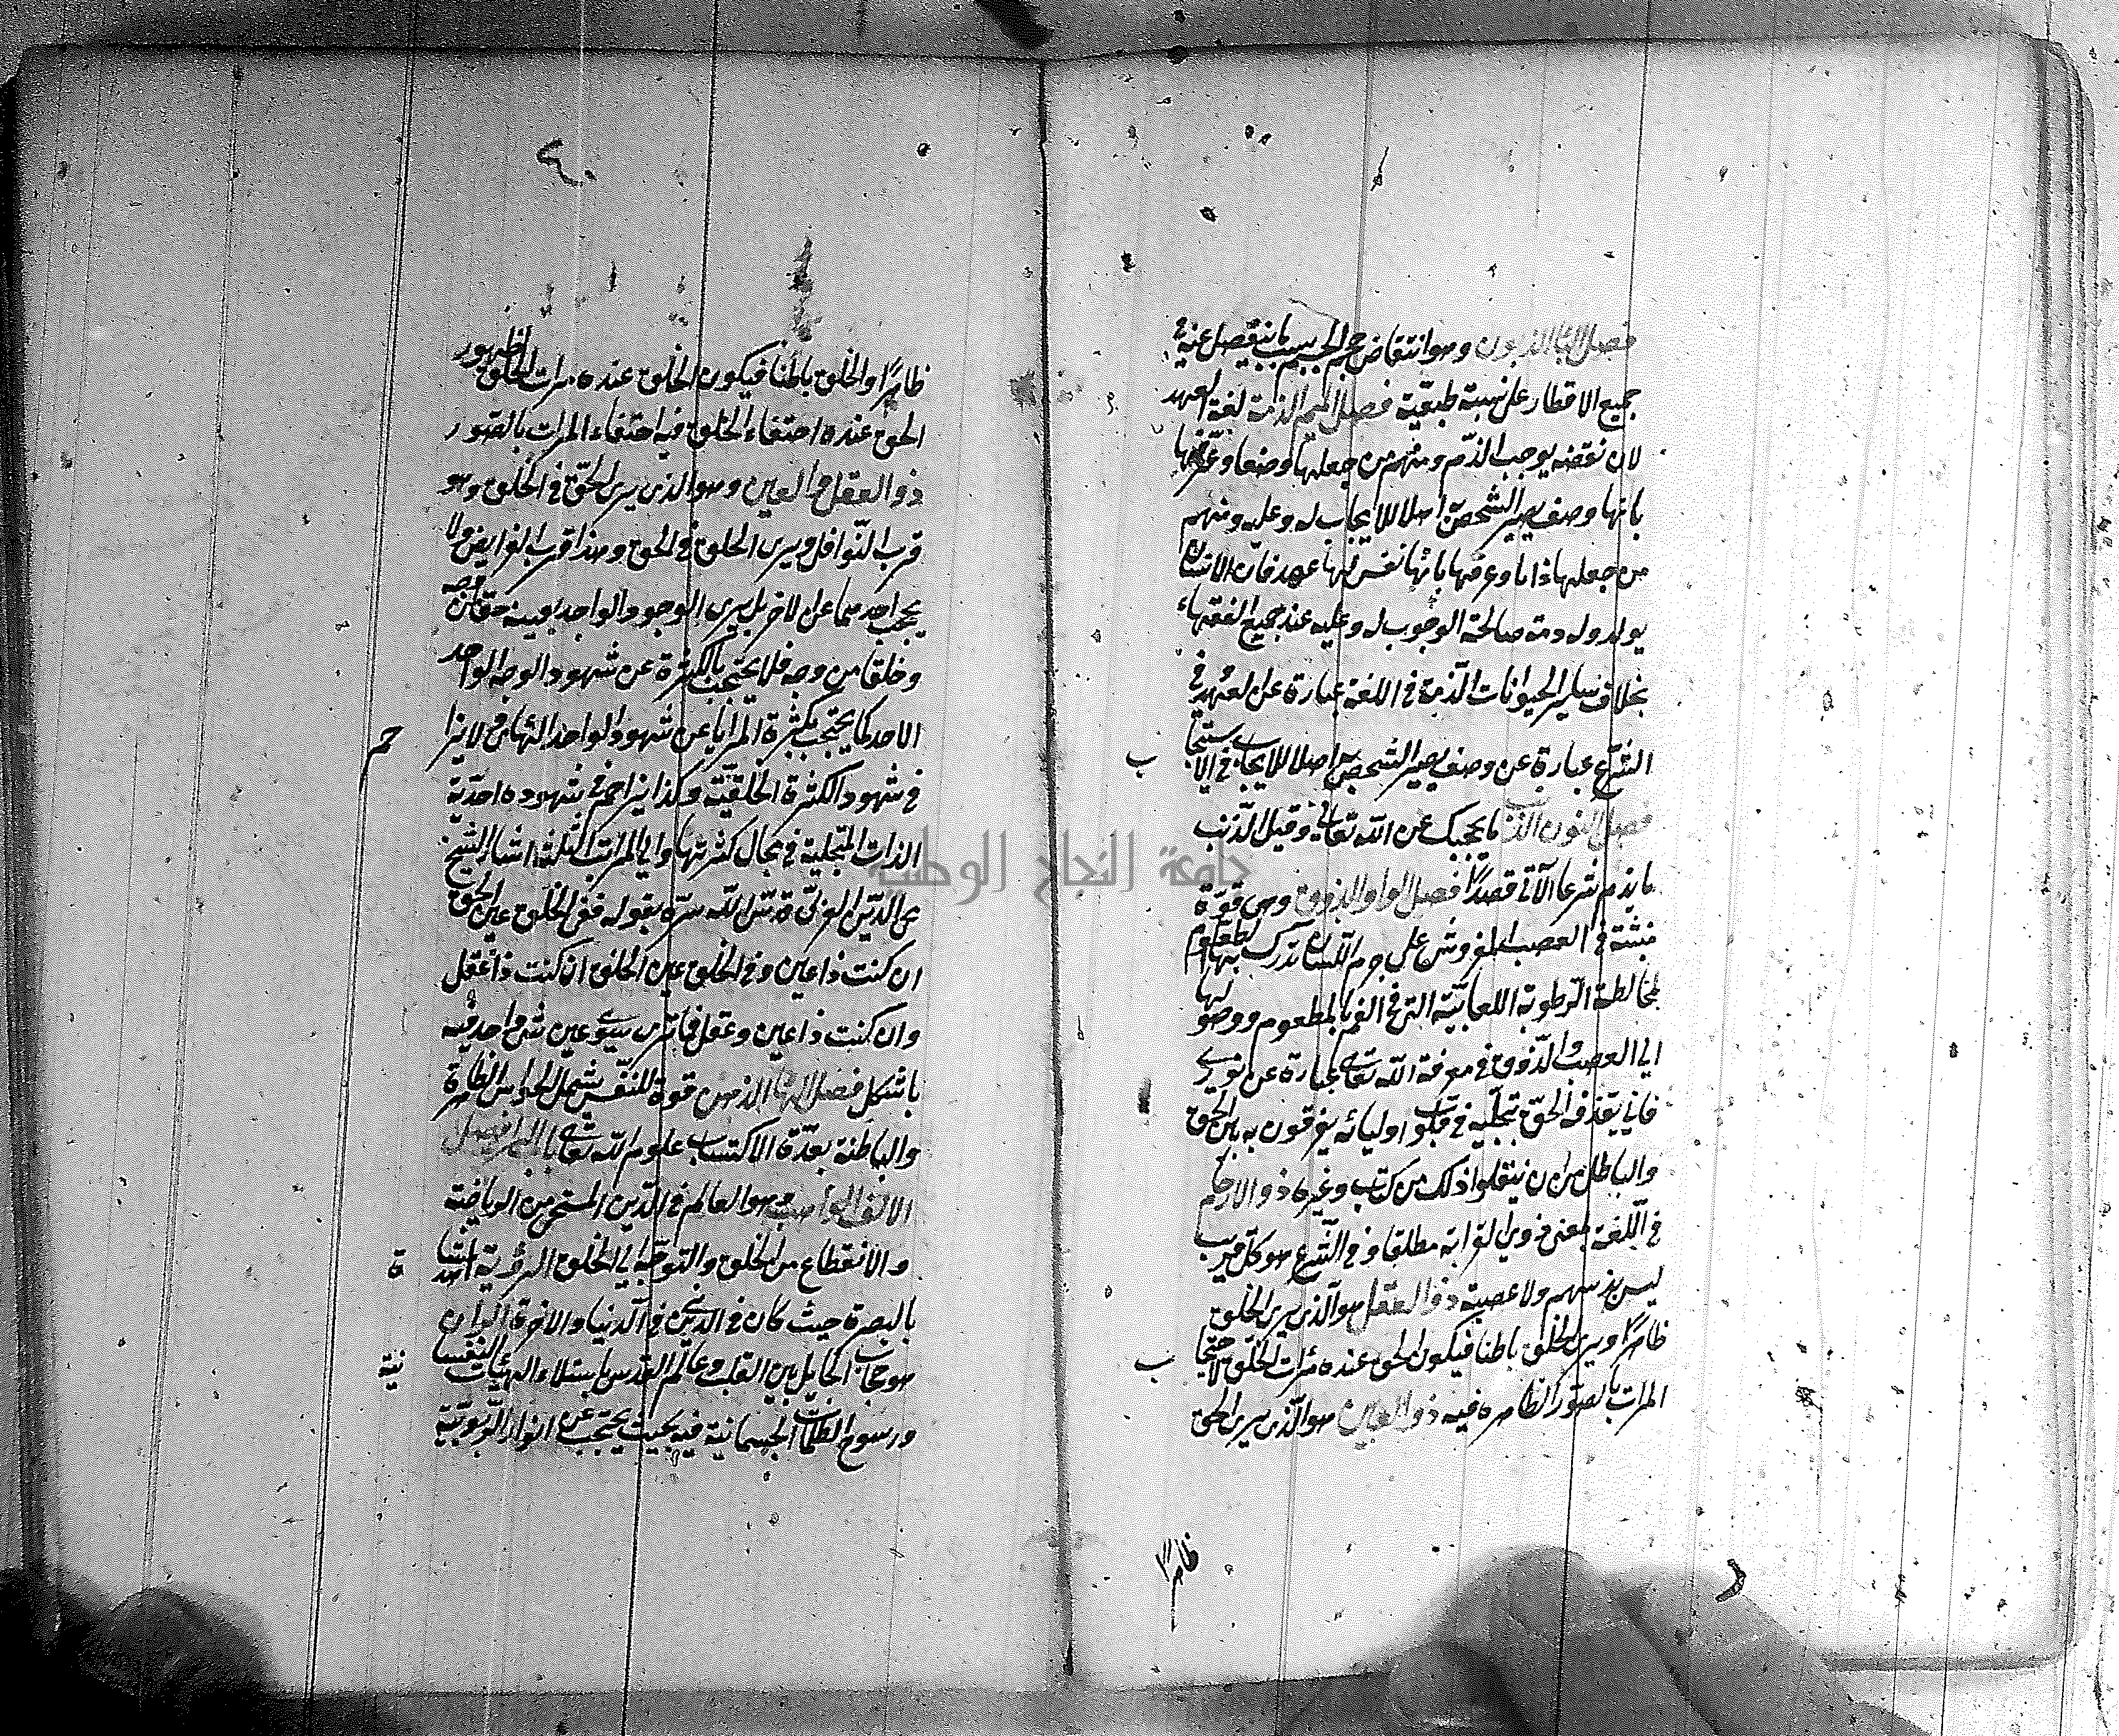 فصل الباء الذبول وهو انتقاض حجم الجسم بسبب ما ينفصل عنه في
جميع الاقطار على نسبة طبعيّة فصل الميم الذمة لغة العهد
لان نقضه يوجب الذّم ومنهم من جعلها وصفا وعرّفها
بانها وصف يصير الشخص به اهلا للايجاب له وعليه ومنهم
من جعلها ذاتا وعرفها بانّها نفس لها عهد فان الانسان
يولد وله ذمة صالحة الوجوب له وعليه عند جميع الفقهاء
بخلاف ساير الحيوانات الذّمة في اللغة عبارة عن العهد وفي
الشرع عبارة عن وصف يصير الشخص به اهلا للايجاب والاستيجا
ب
فصل النون الذنب ما يحجبك عن الله تعالى وقيل الذنب
ما يذم شرعا الآتي قصدًا فصل الواو الذوق وهي قوّة
منبثة في العصب المفروش على جرم اللسان تدرك بها الطعوم
لمخالطة الرّطوبة اللعابيّة التي في الفم بالمطعوم ووصولها
الى العصب والذّوق في معرفة الله تعالى عبارة عن نور
عرفاني يقذفه الحقّ بتجلّيه في قلوب اوليائه يفرقون به بين الحق
والباطل من ان ينقلوا ذلك من كتاب وغيره ذو الارحام
في اللّغة بمعنى ذوي القرابة مطلقا وفي الشّرع هو كل قريب
ليس بذي سهم ولا عصبة ذو العقل هو الّذي يرى الخلق
ظاهرًا ويرى الحق باطنا فيكون الحق عنده مرآت الخلق لاحتجا
ب
المرات بالصّور الظاهرة فيه ذو العين هو الّذي يرى الحق
ظاهرًا
ظاهرًا والخلق باطنا فيكون الخلق عنده مرات الحق لظهور
الحق عنده واختفاء الخلق فيه اختفاء المرات بالصّور
ذو العقل والعين وهو الذي يرى الحقّ في الخلق وهو
قرب النّوافل ويرى الخلق في الحق وهذا قرب الفرايض ولا
يحجب احدهما عن الاخر بل يرى الوجود الواحد بعينه حقا من وجه
وخلقا من وجه فلا يحتجب بالكثرة عن شهود الوجه الواحد
الاحد كما يحتجب بكثرة المرايا عن شهود الواحد الرائي ولا تزا
حم
في شهود الكثرة الخلقيّة وكذا يزاحم في شهوده احدّية
الذات المتجلية في مجال كثرتها والى المراتب الثلثة اشار الشيخ
محي الدّين العربي قدّس الله سرّه بقوله ففي الخلق عين الحق
ان كنت ذا عين وفي الحق عين الخلق ان كنت ذا عقل
وان كنت ذا عين وعقل فما ترى سوى عين شئ واحد فيه
با شكل فصل الهاء الذهن قوة للنّفس يشمل الحواس الظاهرة
والباطنة بعدّة الاكتساب علوم الله تعالى باب الراء فصل
الالف الراهب هو العالم في الدّين المسيحي من الرياضة
والانقطاع من الخلق والتوجّه الى الحق الرؤية المشاهد
ة
بالبصر حيث كان في الدنيا والاخرة الران
هو حجاب الحايل بين القلب وعالم القدس باستيلاء الهيئات النفسا
نية
ورسوخ الظلمات الجسمانية فيه بحيث يحتجب عن انوار الرّبوبيّة
جامعة النجاح الوطنية